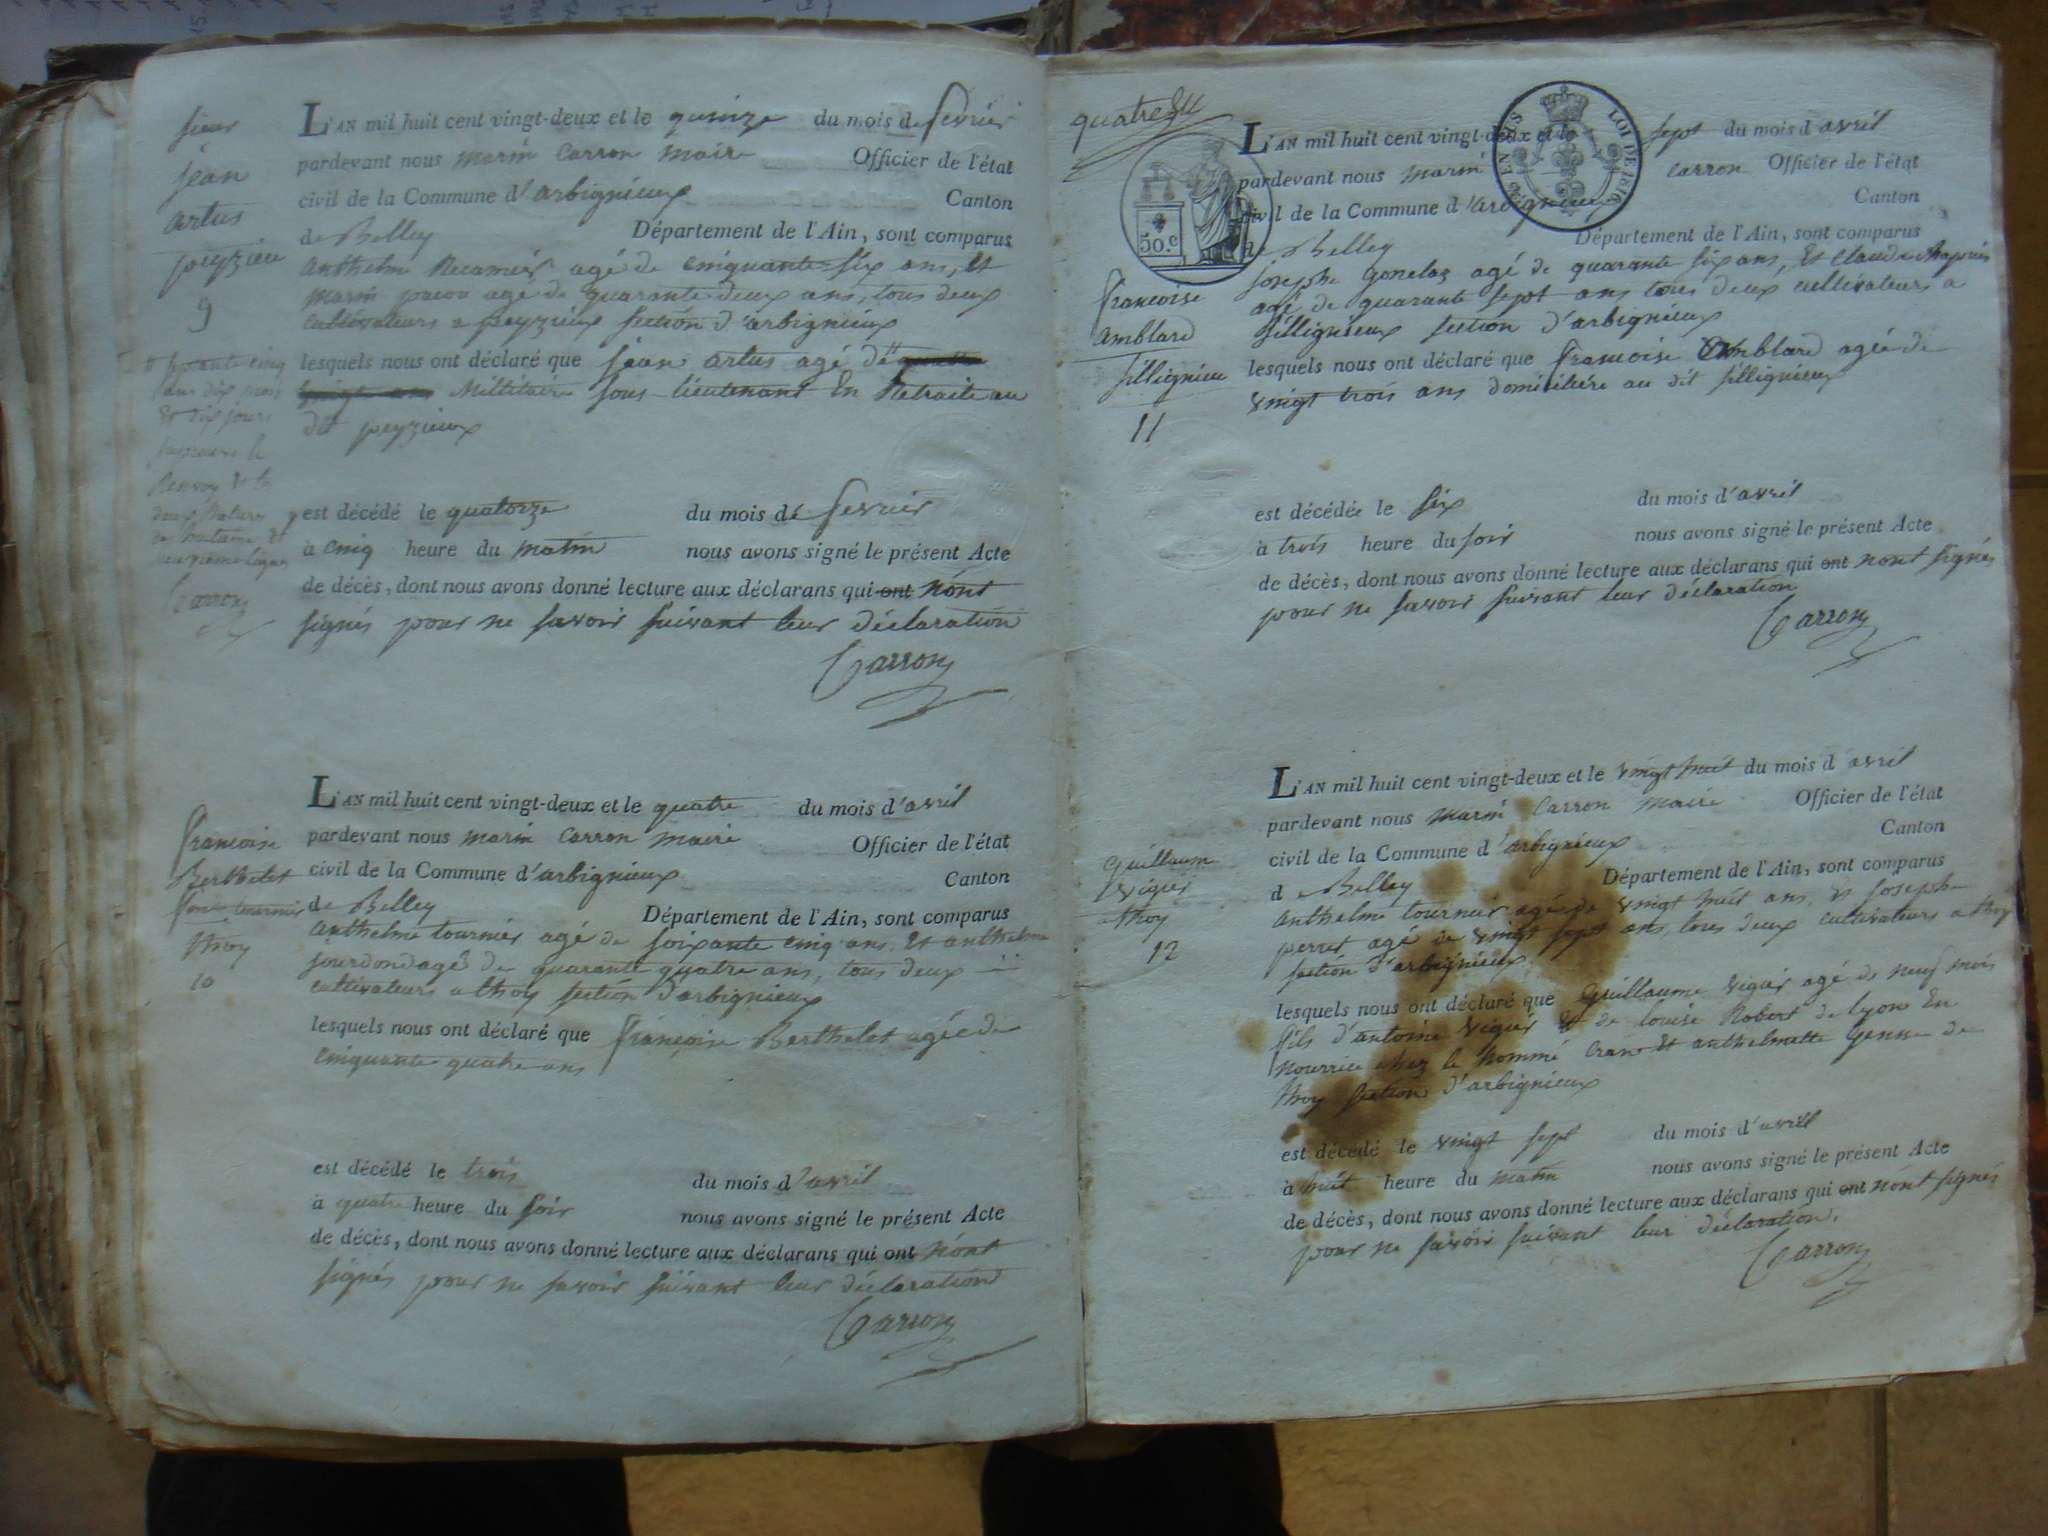 sieur
jean
artus
peyzieu
9
L'AN mil huit cent vingt-deux et le quinze du mois de fevrier
pardevant nous marin Carron maire Officier de l'état
civil de la Commune d'arbignieux Canton
de Belley Département de l'Ain, sont comparus
anthelme Recamier agé de cinquante-six ans, et
marin agé de quarante deux ans, tous deux
cultivateurs a peyzieux section d'arbignieux
lesquels nous ont déclaré que jean artus agé de
Millitaire sous-lieutenant En Retraite au
dit peyzieux
ans dix mois
et dix jours
Carron
est décédé le quatorze du mois de fevrier
à cinq heure du matin nous avons signé le présent Acte
de décès, dont nous avons donné lecture aux déclarans qui ont nont
signés pour ne savoir suivant leur déclaration
Carron
francoise
Berthelet
tournier
thoy
10
L'AN mil huit cent vingt-deux et le quatre du mois d'avril
pardevant nous marin Carron maire Officier de l'état
civil de la Commune d'arbignieux Canton
de Belley Département de l'Ain, sont comparus
anthelme tournier agé de soixante cinq ans. Et anthelme
jourdond agé de quarante quatre ans, tous deux
cultivateurs a thoy section d'arbignieux
lesquels nous ont déclaré que françoise Berthelet agée de
cinquante quatre ans
est décédé le trois du mois d'avril
à quatre heure du soir nous avons signé le présent Acte
de décès, dont nous avons donné lecture aux déclarans qui ont nont
signés pour ne savoir suivant leur déclaration
Carron
50.c
LOI DE 1816
francoise
amblard
sillignieu
11
L'AN mil huit cent vingt-deux et le sept du mois d'avril
pardevant nous marin Carron Officier de l'état
civil de la Commune d'arbignieux Canton
de Belley Département de l'Ain, sont comparus
josephe gonelaz agé de quarante six ans, Et Claude
agé de quarante sept ans tous deux cultivateurs a
sillignieux section d'arbignieux
lesquels nous ont déclaré que francoise amblard agée de
vingt trois ans domiciliere au dit sillignieux
est décédée le six du mois d'avril
à trois heure du soir nous avons signé le présent Acte
de décès, dont nous avons donné lecture aux déclarans qui ont nont signés
pour ne savoir suivant leur déclaration
Carron
Guillaum
vigier
a thoy
12
L'AN mil huit cent vingt-deux et le vingt huit du mois d'avril
pardevant nous marin Carron maire Officier de l'état
civil de la Commune d'arbignieux Canton
de Belley Département de l'Ain, sont comparus
anthelme tournier agé de vingt huit ans, et josephe
perret agé de vingt sept ans, tous deux cultivateurs a thoy
section d'arbignieux
lesquels nous ont déclaré que Guillaume vigier agé de neuf mois
fils d'antoine vigier et de louise Robert de lyon En
nourrice chez le nommé Et anthelmette de
thoy section d'arbignieux
est décédé le vingt sept du mois d'avril
à huit heure du matin nous avons signé le présent Acte
de décès, dont nous avons donné lecture aux déclarans qui ont nont signés
pour ne savoir suivant leur déclaration.
Carron